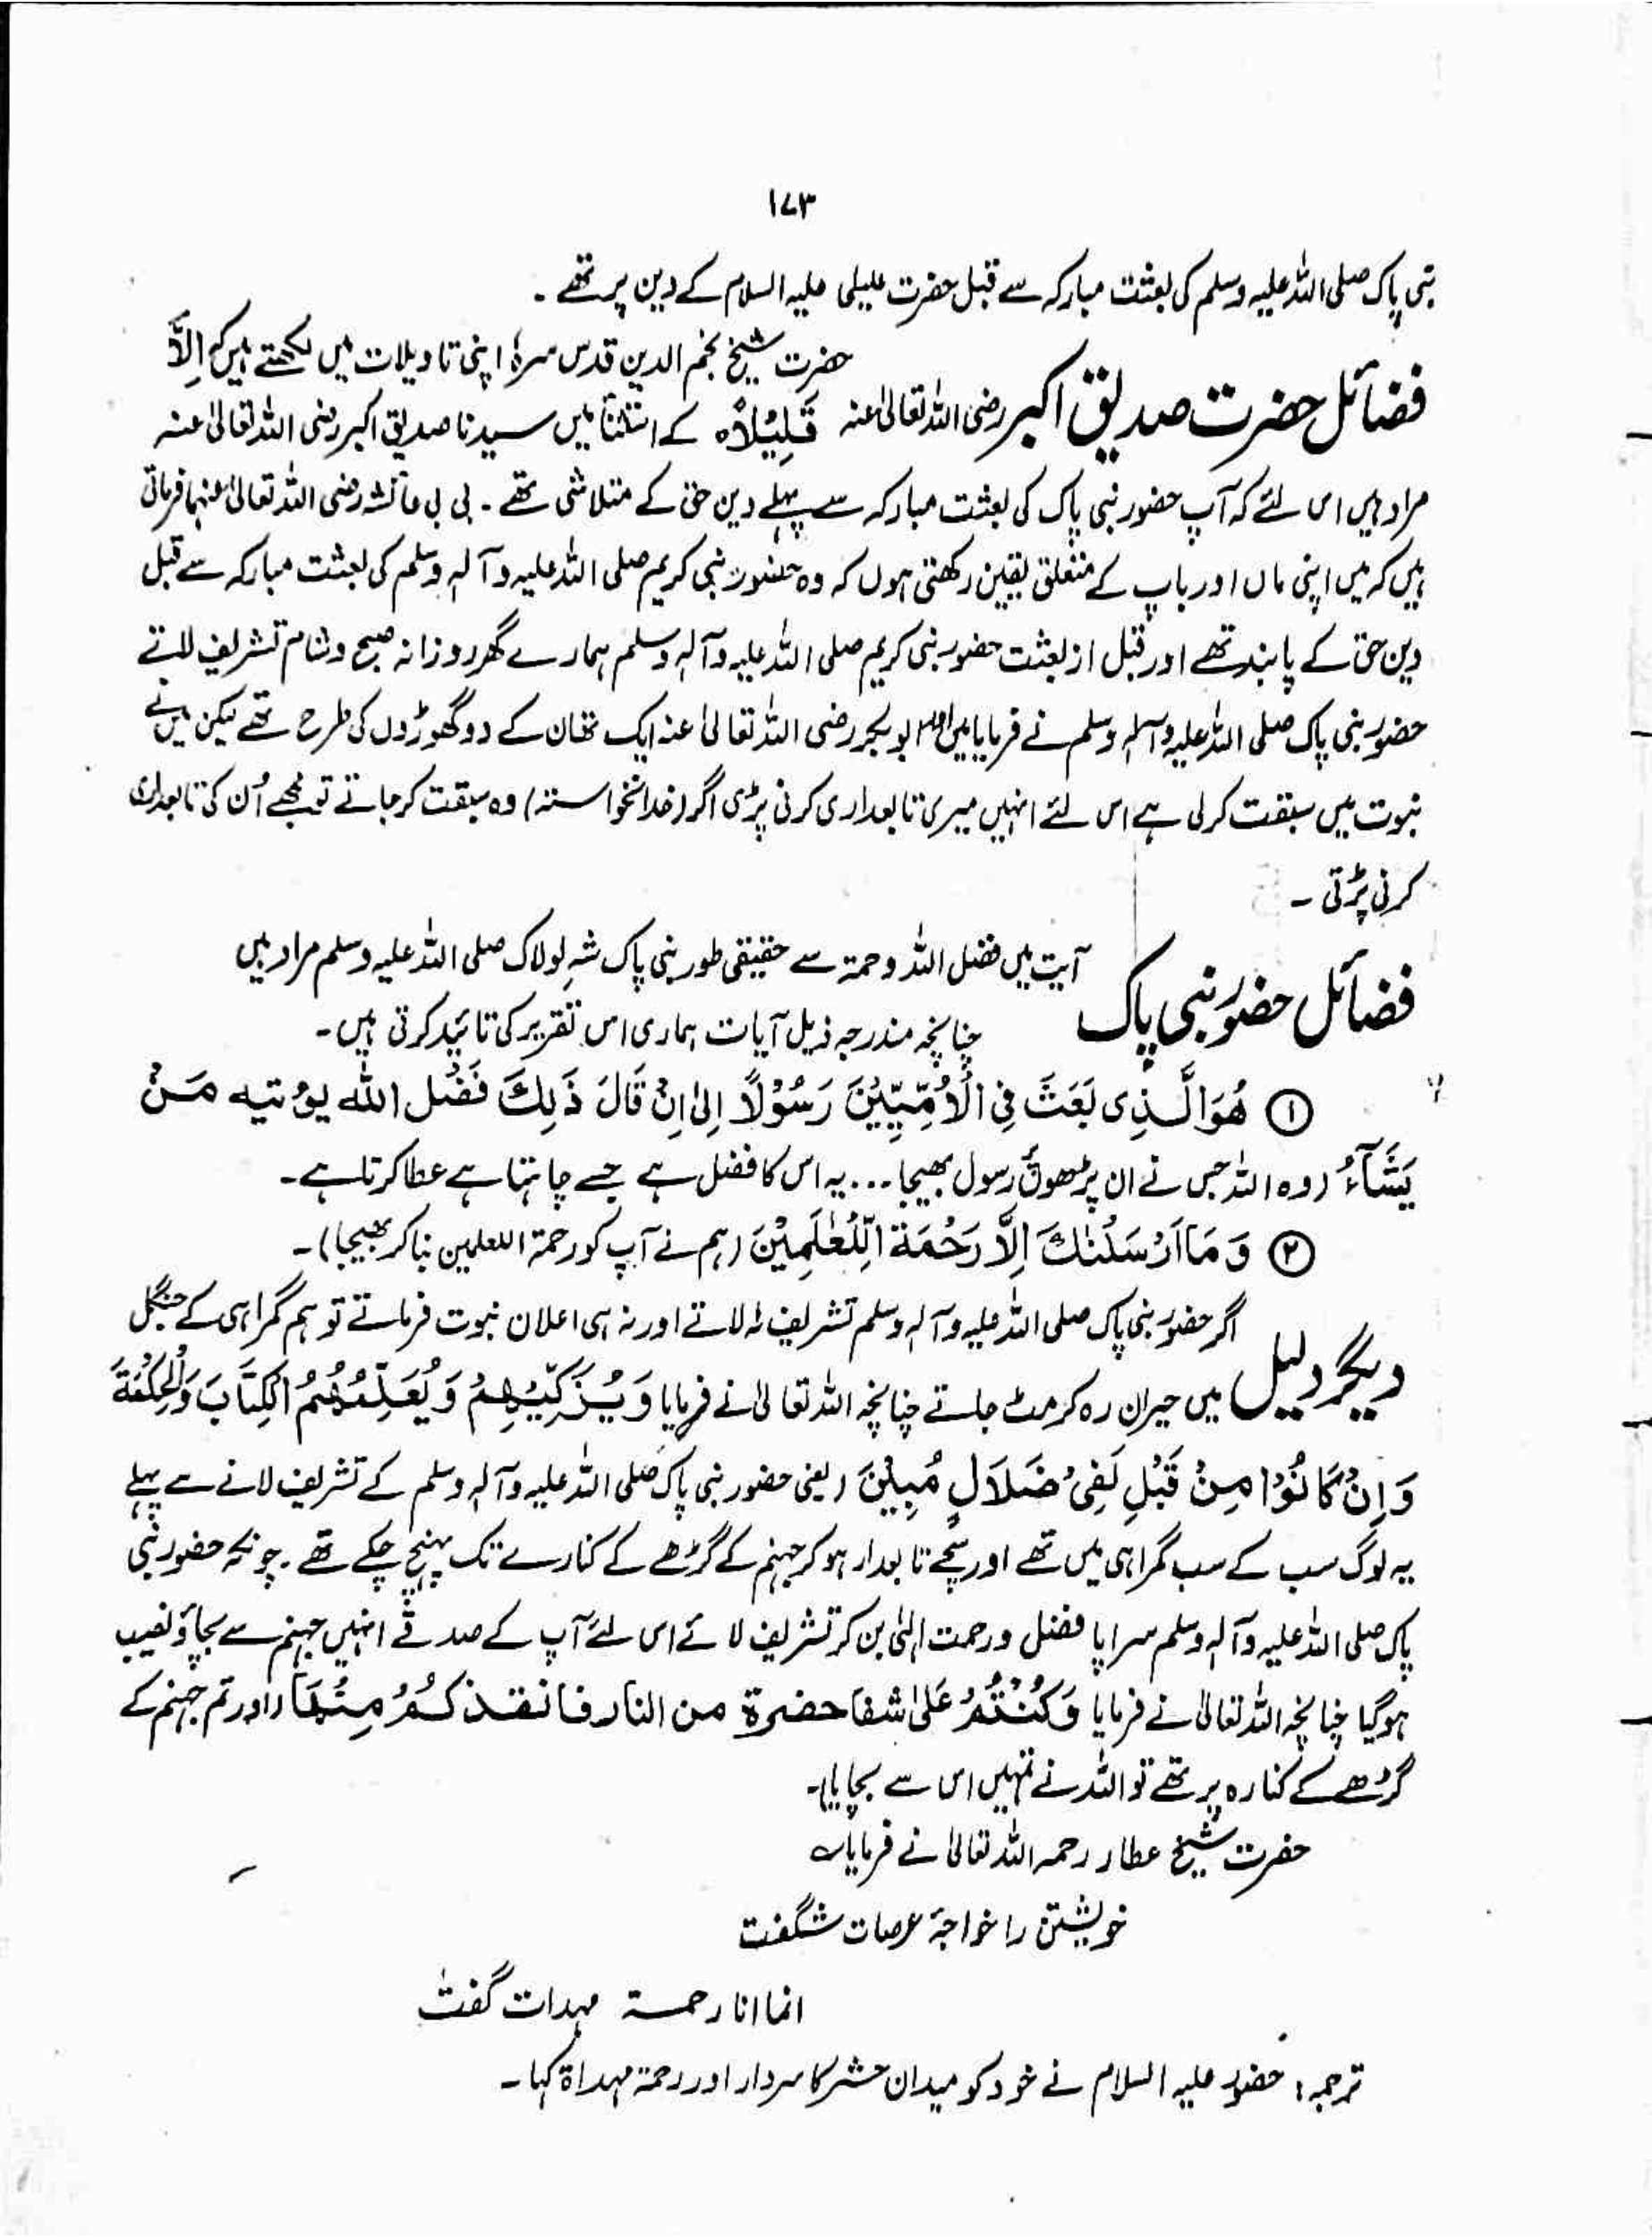 ۱۷۳
نبی پاک صلی اللہ علیہ وسلم کی بعثت مبارکہ سے قبل حضرت عیسٰی علیہ السلام کے دین پر تھے ۔
حضرت شیخ نجم الدین قدس سرہٗ اپنی تاویلات میں لکھتے ہیں کہ اِلَّا
فضائل حضرت صدیق اکبر رضی اللہ تعالیٰ عنہ قَلِیْلًا ہ کے استثنا میں سیدنا صدیق اکبر رضی اللہ تعالیٰ عنہ
مراد ہیں اس لئے کہ آپ حضور نبی پاک کی بعثت مبارکہ سے پہلے دین حق کے متلاشی تھے ۔ بی بی عائشہ رضی اللہ تعالیٰ عنہما فرماتی
ہیں کہ میں اپنی ماں اور باپ کے متعلق یقین رکھتی ہوں کہ وہ حضور نبی کریم صلی اللہ علیہ وآلہٖ وسلم کی بعثت مبارکہ سے قبل
دین حق کے پابند تھے اور قبل از بعثت حضور نبی کریم صلی اللہ علیہ وآلہٖ وسلم ہمارے گھر روزانہ صبح و شام تشریف لاتے
حضور نبی پاک صلی اللہ علیہ وآلہٖ وسلم نے فرمایا میں اور ابو بکر رضی اللہ تعالیٰ عنہ ایک تھان کے دو گھوڑوں کی طرح تھے لیکن میں نے
نبوت میں سبقت کر لی ہے اس لئے انہیں میری تابعداری کرنی پڑی اگر (خدانخواستہ) وہ سبقت کر جاتے تو مجھے اُن کی تابعداری
کرنی پڑتی ۔
آیت میں فضل اللہ و حمۃ سے حقیقی طور نبی پاک شہِ لولاک صلی اللہ علیہ وسلم مراد ہیں
فضائل حضور نبی پاک
چنانچہ مندرجہ ذیل آیات ہماری اس تقریر کی تائید کرتی ہیں ۔
① هُوَالَّذِی بَعَثَ فِی الْاُمِّیِّیْنَ رَسُوْلًا اِلٰی اِنْ قَالَ ذَلِكَ فَضْلُ اللّٰه یوْتیه مَنْ
یَشَآءُ (وہ اللہ جس نے ان پڑھوں میں رسول بھیجا ... یہ اس کا فضل ہے جسے چاہتا ہے عطا کرتا ہے ۔
② وَ مَا اَرْسَلْنٰكَ اِلَّا رَحْمَةً لِّلْعٰلَمِیْنَ (ہم نے آپ کو رحمۃ اللعلمین بنا کر بھیجا) ۔
اگر حضور نبی پاک صلی اللہ علیہ وآلہٖ وسلم تشریف نہ لاتے اور نہ ہی اعلان نبوت فرماتے تو ہم گمراہی کے جنگل
دیگر دلیل میں حیران رہ کر مٹ جاتے چنانچہ اللہ تعالیٰ نے فرمایا وَ یُزَكِّیْهِمْ وَ یُعَلِّمُهُمُ الْكِتَابَ وَالْحِكْمَةَ
وَ اِنْ كَانُوْا مِنْ قَبْلِ لَفِیْ ضَلَالٍ مُّبِیْنَ (یعنی حضور نبی پاک صلی اللہ علیہ وآلہٖ وسلم کے تشریف لانے سے پہلے
یہ لوگ سب کے سب گمراہی میں تھے اور سچے تابعدار ہو کر جہنم کے گڑھے کے کنارے تک پہنچ چکے تھے ۔ چونکہ حضور نبی
پاک صلی اللہ علیہ وآلہٖ وسلم سراپا فضل و رحمت الٰہی بن کر تشریف لائے اس لئے آپ کے صدقے انہیں جہنم سے بچاؤ نصیب
ہو گیا چنانچہ اللہ تعالیٰ نے فرمایا وَكُنْتُمْ عَلیٰ شفَا حضرة من النار فانقذكُمْ مِنْهَا (اور تم جہنم کے
گڑھے کے کنارہ پر تھے تو اللہ نے تمہیں اس سے بچایا) ۔
حضرت شیخ عطار رحمہ اللہ تعالیٰ نے فرمایا ؎
خویشتن را خواجۂ عرصات شگفت
انما انا رحمۃ مہدات گفت
ترجمہ : حضور علیہ السلام نے خود کو میدان حشر کا سردار اور رحمۃ مہداۃ کہا ۔